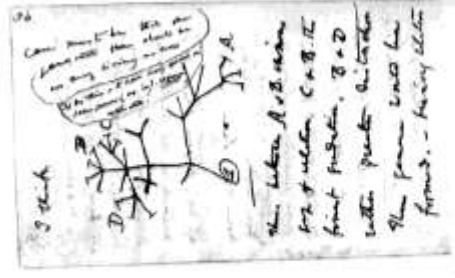 36
I think
Case must be that one
generation then should be
as many living as now
To do this & to have many species in
same genus (as is) requires
extinction
A
B
C
D
1
Thus between A & B. immense
gap of relation. C & B. the
finest gradation, B & D
rather greater distinction
Thus genera would be
formed. — bearing relation